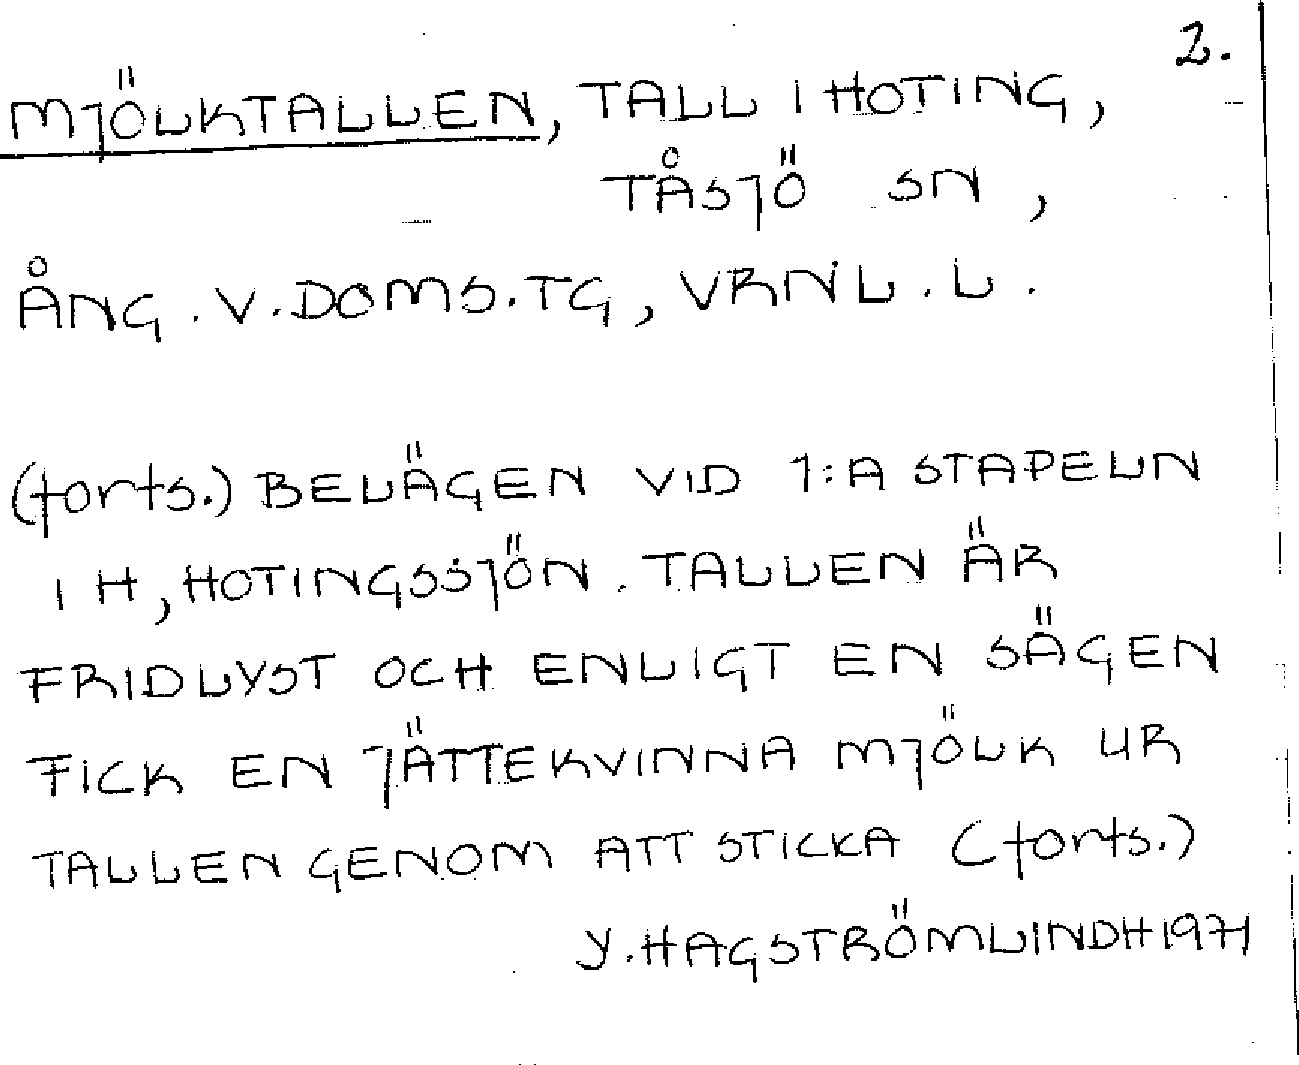 2.
MJÖLKTALLEN, TALL I HOTING,
TÅSJÖ SN,
ÅNG. V. DOMS.TG, VRNL. L.
(forts.) BELÄGEN VID 1:A STAPELN
I H, HOTINGSSJÖN. TALLEN ÄR
FRIDLYST OCH ENLIGT EN SÄGEN
FICK EN JÄTTEKVINNA MJÖLK UR
TALLEN GENOM ATT STICKA (forts.)
Y. HAGSTRÖMLINDH 1971